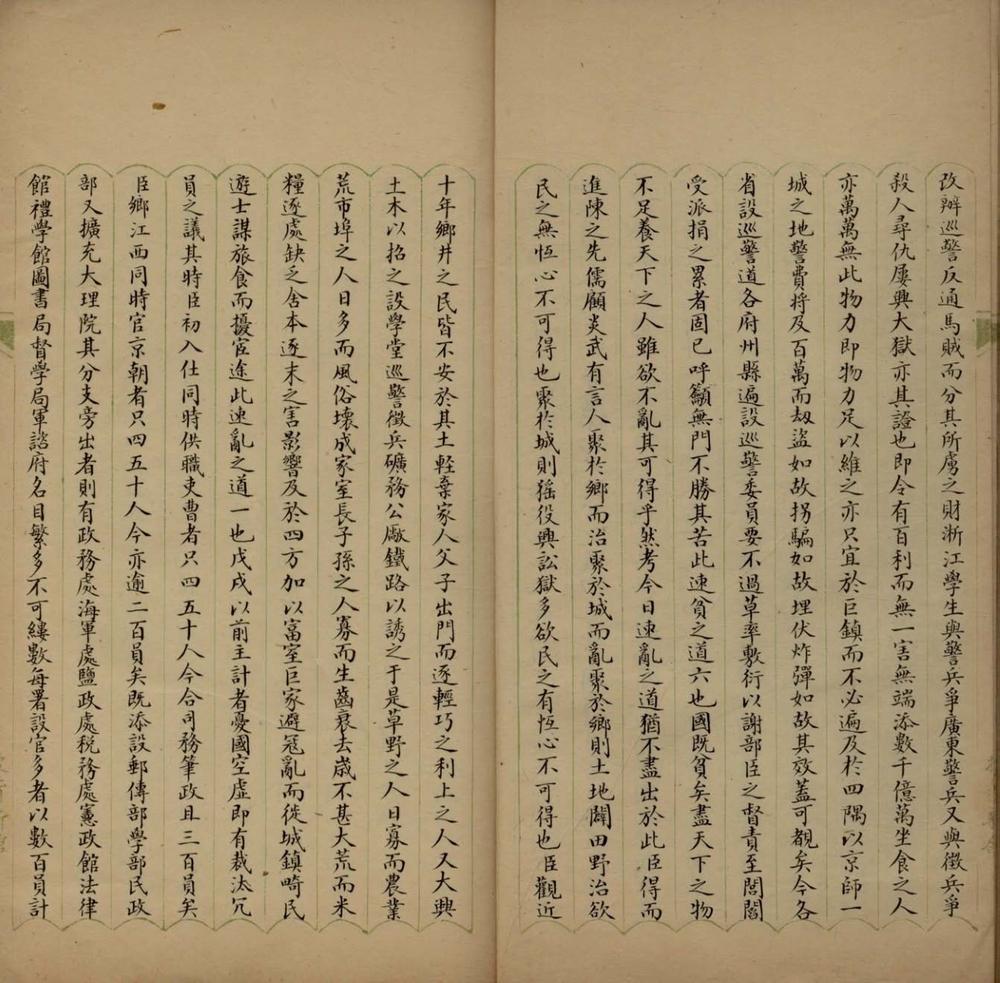 改辦巡警反通馬賊而分其所虜之財浙江學生與警兵爭廣東警兵又與徵兵爭
殺人尋仇屢興大獄亦其證也即令有百利而無一害無端添數千億萬坐食之人
亦萬萬無此物力即物力足以維之亦只宜於巨鎮而不必遍及於四隅以京師一
城之地警費將及百萬而刼盜如故拐騙如故埋伏炸彈如故其效蓋可覩矣今各
省設巡警道各府州縣遍設巡警委員要不過草率敷衍以謝部臣之督責至閭閻
受派捐之累者固已呼籲無門不勝其苦此速貧之道六也國既貧矣盡天下之物
不足養天下之人雖欲不亂其可得乎然考今日速亂之道猶不盡出於此臣得而
進陳之先儒顧炎武有言人聚於鄉而治聚於城而亂聚於鄉則土地闢田野治欲
民之無恆心不可得也聚於城則徭役興訟獄多欲民之有恆心不可得也臣觀近
十年鄉井之民皆不安於其土輕棄家人父子出門而逐輕巧之利上之人又大興
土木以招之設學堂巡警徵兵礦務公廠鐵路以誘之于是草野之人日寡而農業
荒市埠之人日多而風俗壞成家室長子孫之人寡而生齒衰去歲不甚大荒而米
糧逐處缺乏舍本逐末之害影響及於四方加以富室巨家避寇亂而徙城鎮畸民
遊士謀旅食而擾宦途此速亂之道一也戊戌以前主計者憂國空虛即有裁汰冗
員之議其時臣初入仕同時供職吏曹者只四五十人今合司務筆政且三百員矣
臣鄉江西同時官京朝者只四五十人今亦逾二百員矣既添設郵傳部學部民政
部又擴充大理院其分支旁出者則有政務處海軍處鹽政處稅務處憲政館法律
館禮學館圖書局督學局軍諮府名目繁多不可縷數每署設官多者以數百員計